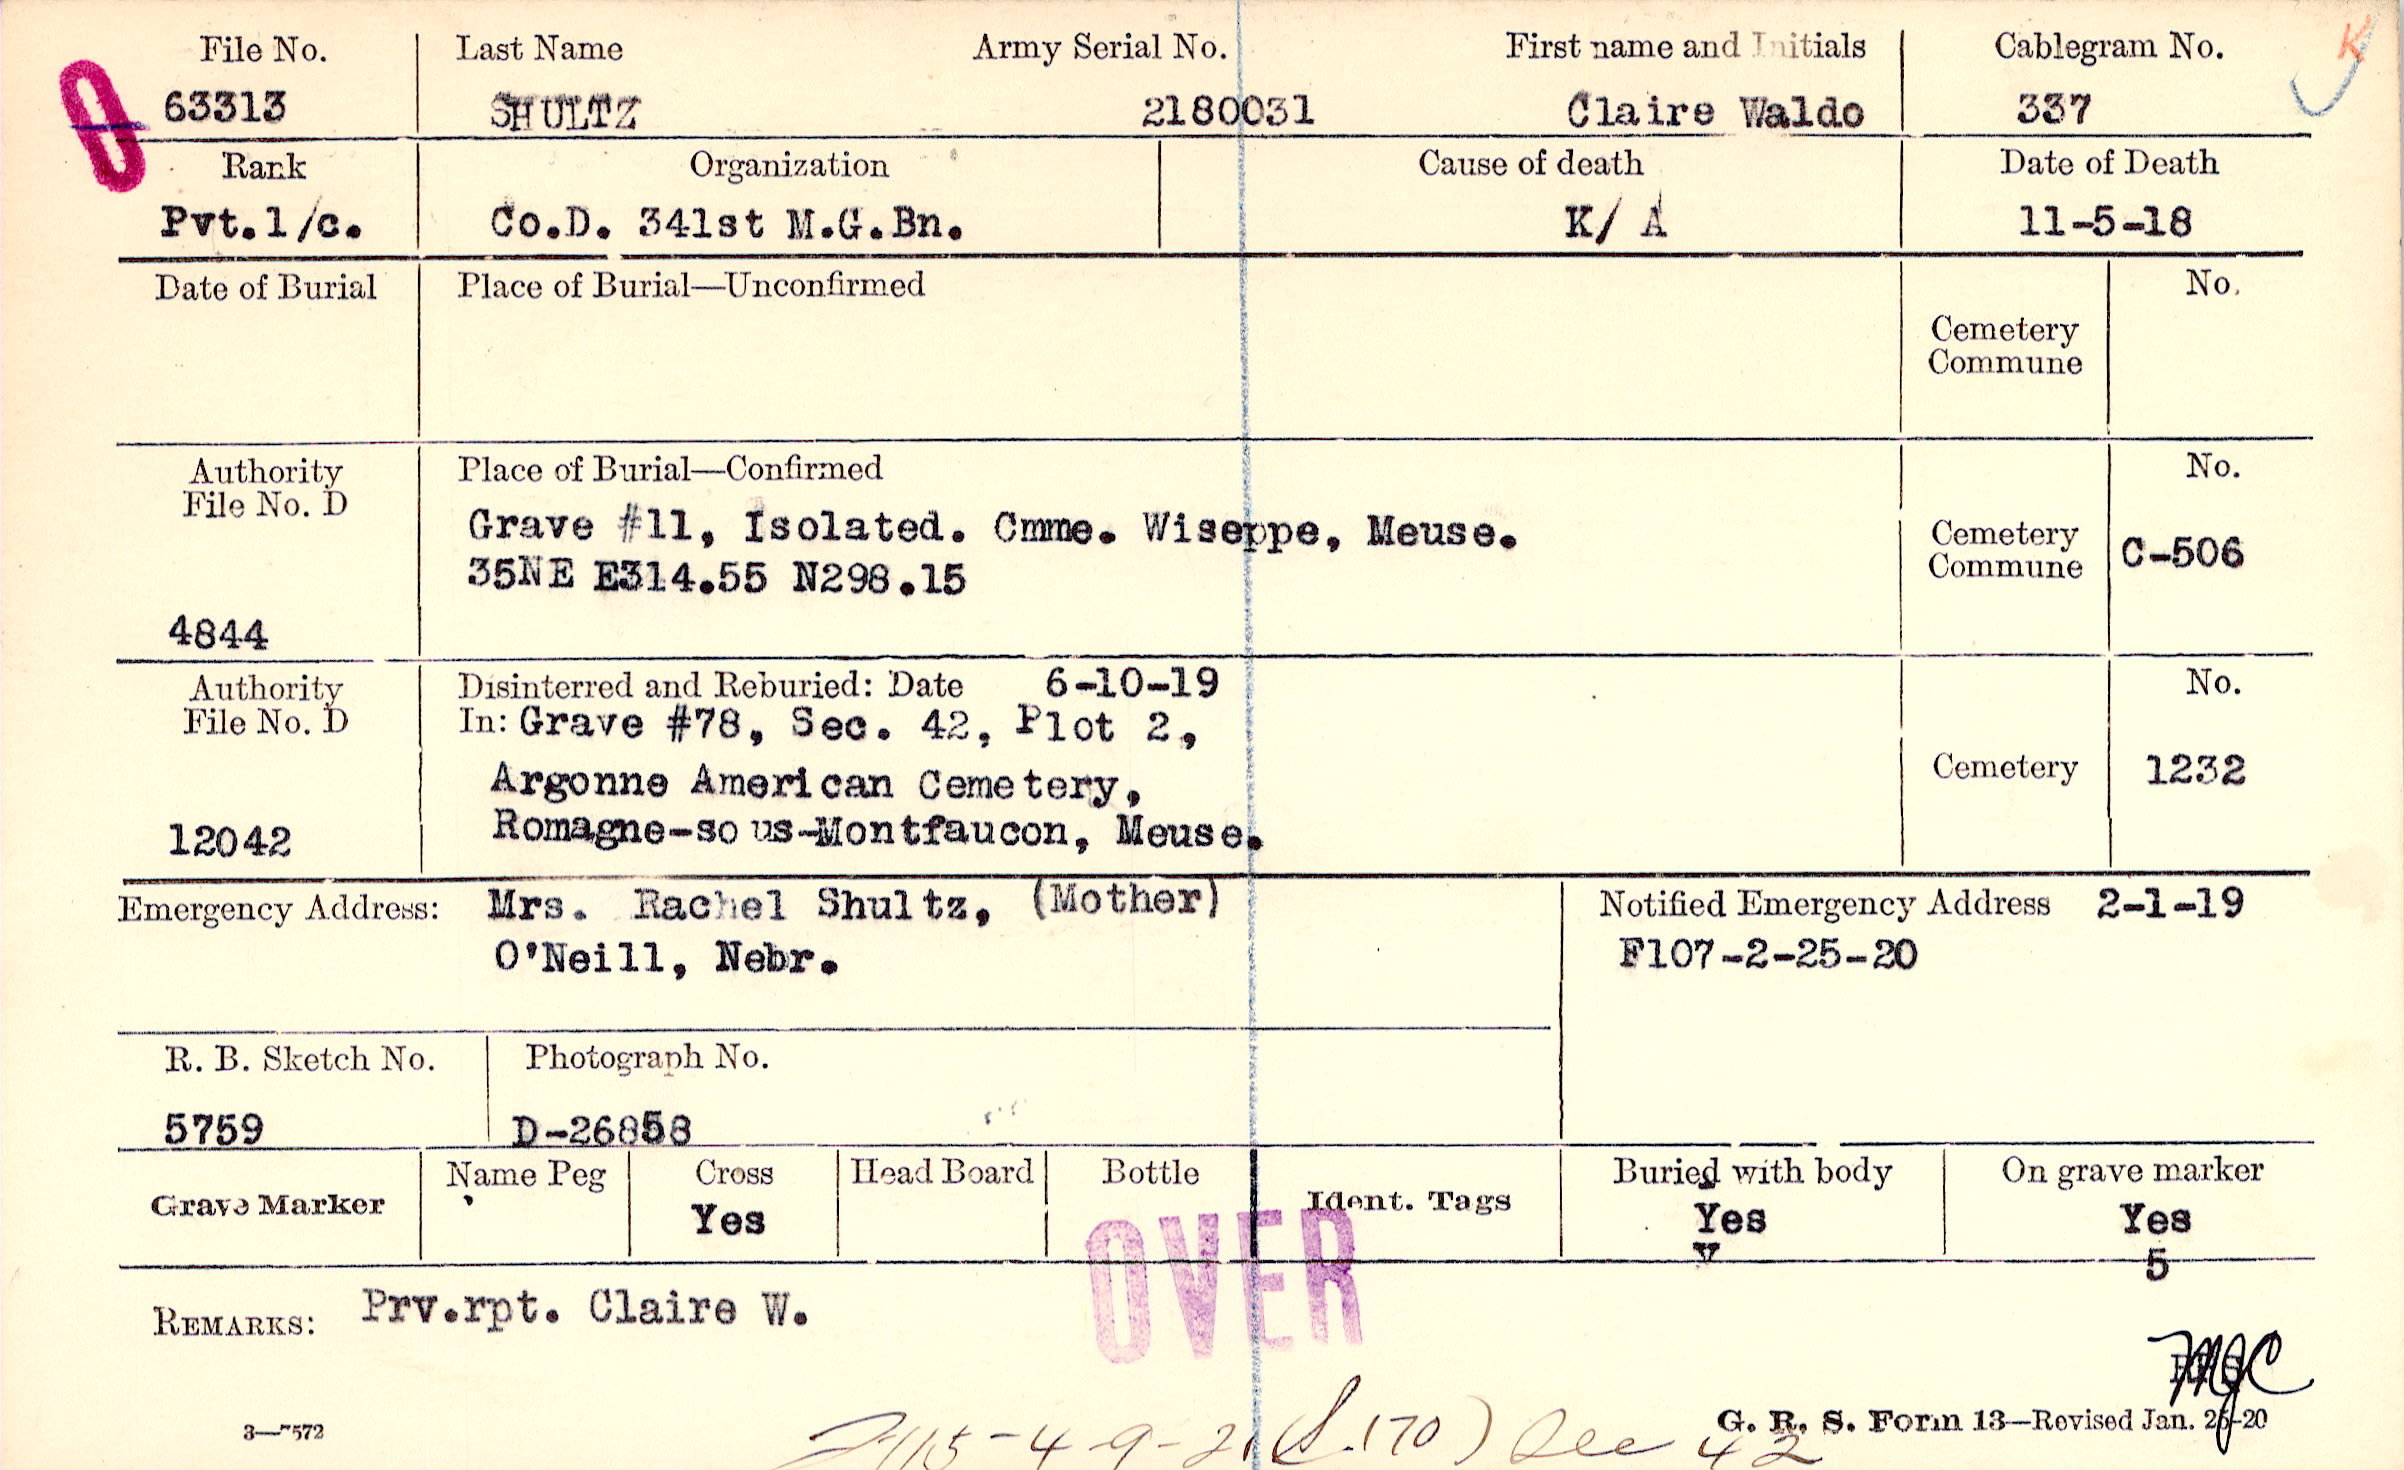 File No. Last Name Army Serial No. First name and Initials Cablegram No. K
63313 SHULTZ 2180031 Claire Waldo 337
Rank Organization Cause of death Date of Death
Pvt.1/c. Co.D. 341st M.G.Bn. K/ A 11-5-18
Date of Burial Place of Burial—Unconfirmed No.
Cemetery
Commune
Authority Place of Burial—Confirmed No.
File No. D
Grave #11, Isolated. Cmme. Wiseppe, Meuse.
Cemetery
Commune C-506
35NE E314.55 N298.15
4844
Authority Disinterred and Reburied: Date 6-10-19 No.
File No. D In: Grave #78, Sec. 42, Plot 2,
Argonne American Cemetery, Cemetery 1232
12042 Romagne-sous-Montfaucon, Meuse.
Emergency Address: Mrs. Rachel Shultz, (Mother) Notified Emergency Address 2-1-19
O'Neill, Nebr. F107-2-25-20
R. B. Sketch No. Photograph No.
5759 D-26858
Grave Marker Name Peg Cross Head Board Bottle Ident. Tags Buried with body On grave marker
Yes Yes Yes
5
OVER
REMARKS: Prv.rpt. Claire W.
MJC
3—7572 G. R. S. Form 13—Revised Jan. 26-20
115-4-9-21 (S.170) See 42